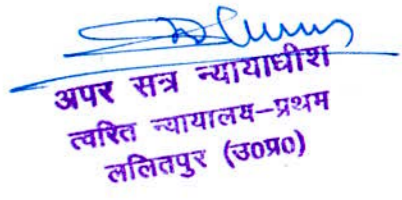 अपर सत्र न्यायाधीश
त्वरित न्यायालय–प्रथम
ललितपुर (उ०प्र०)